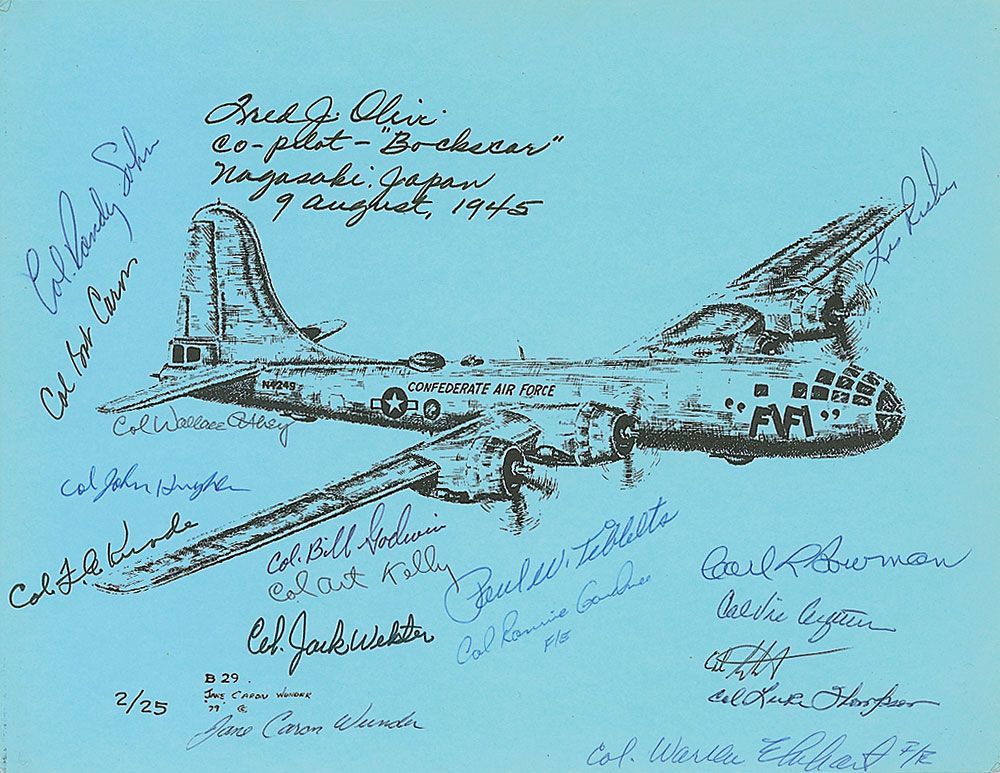 Fred J. Olivi
co-pilot - "Bockscar"
Nagasaki, Japan
9 August, 1945
Col. Randy Sohn
Col Bob Caron
N4249
CONFEDERATE AIR FORCE
"FIFI"
Col Wallace
Col John Hughes
Col. Bill Godwin
Col Art Kelly
Col. Jack Webster
Paul W. Tibbets
Col Ronnie Gardner
F/E
Carl R Bowman
Col Vic
Col
Col Luke Thompson
B 29
JANE CARON WUNDER
'79 ©
2/25
Jane Caron Wunder
Col. Warren F/E